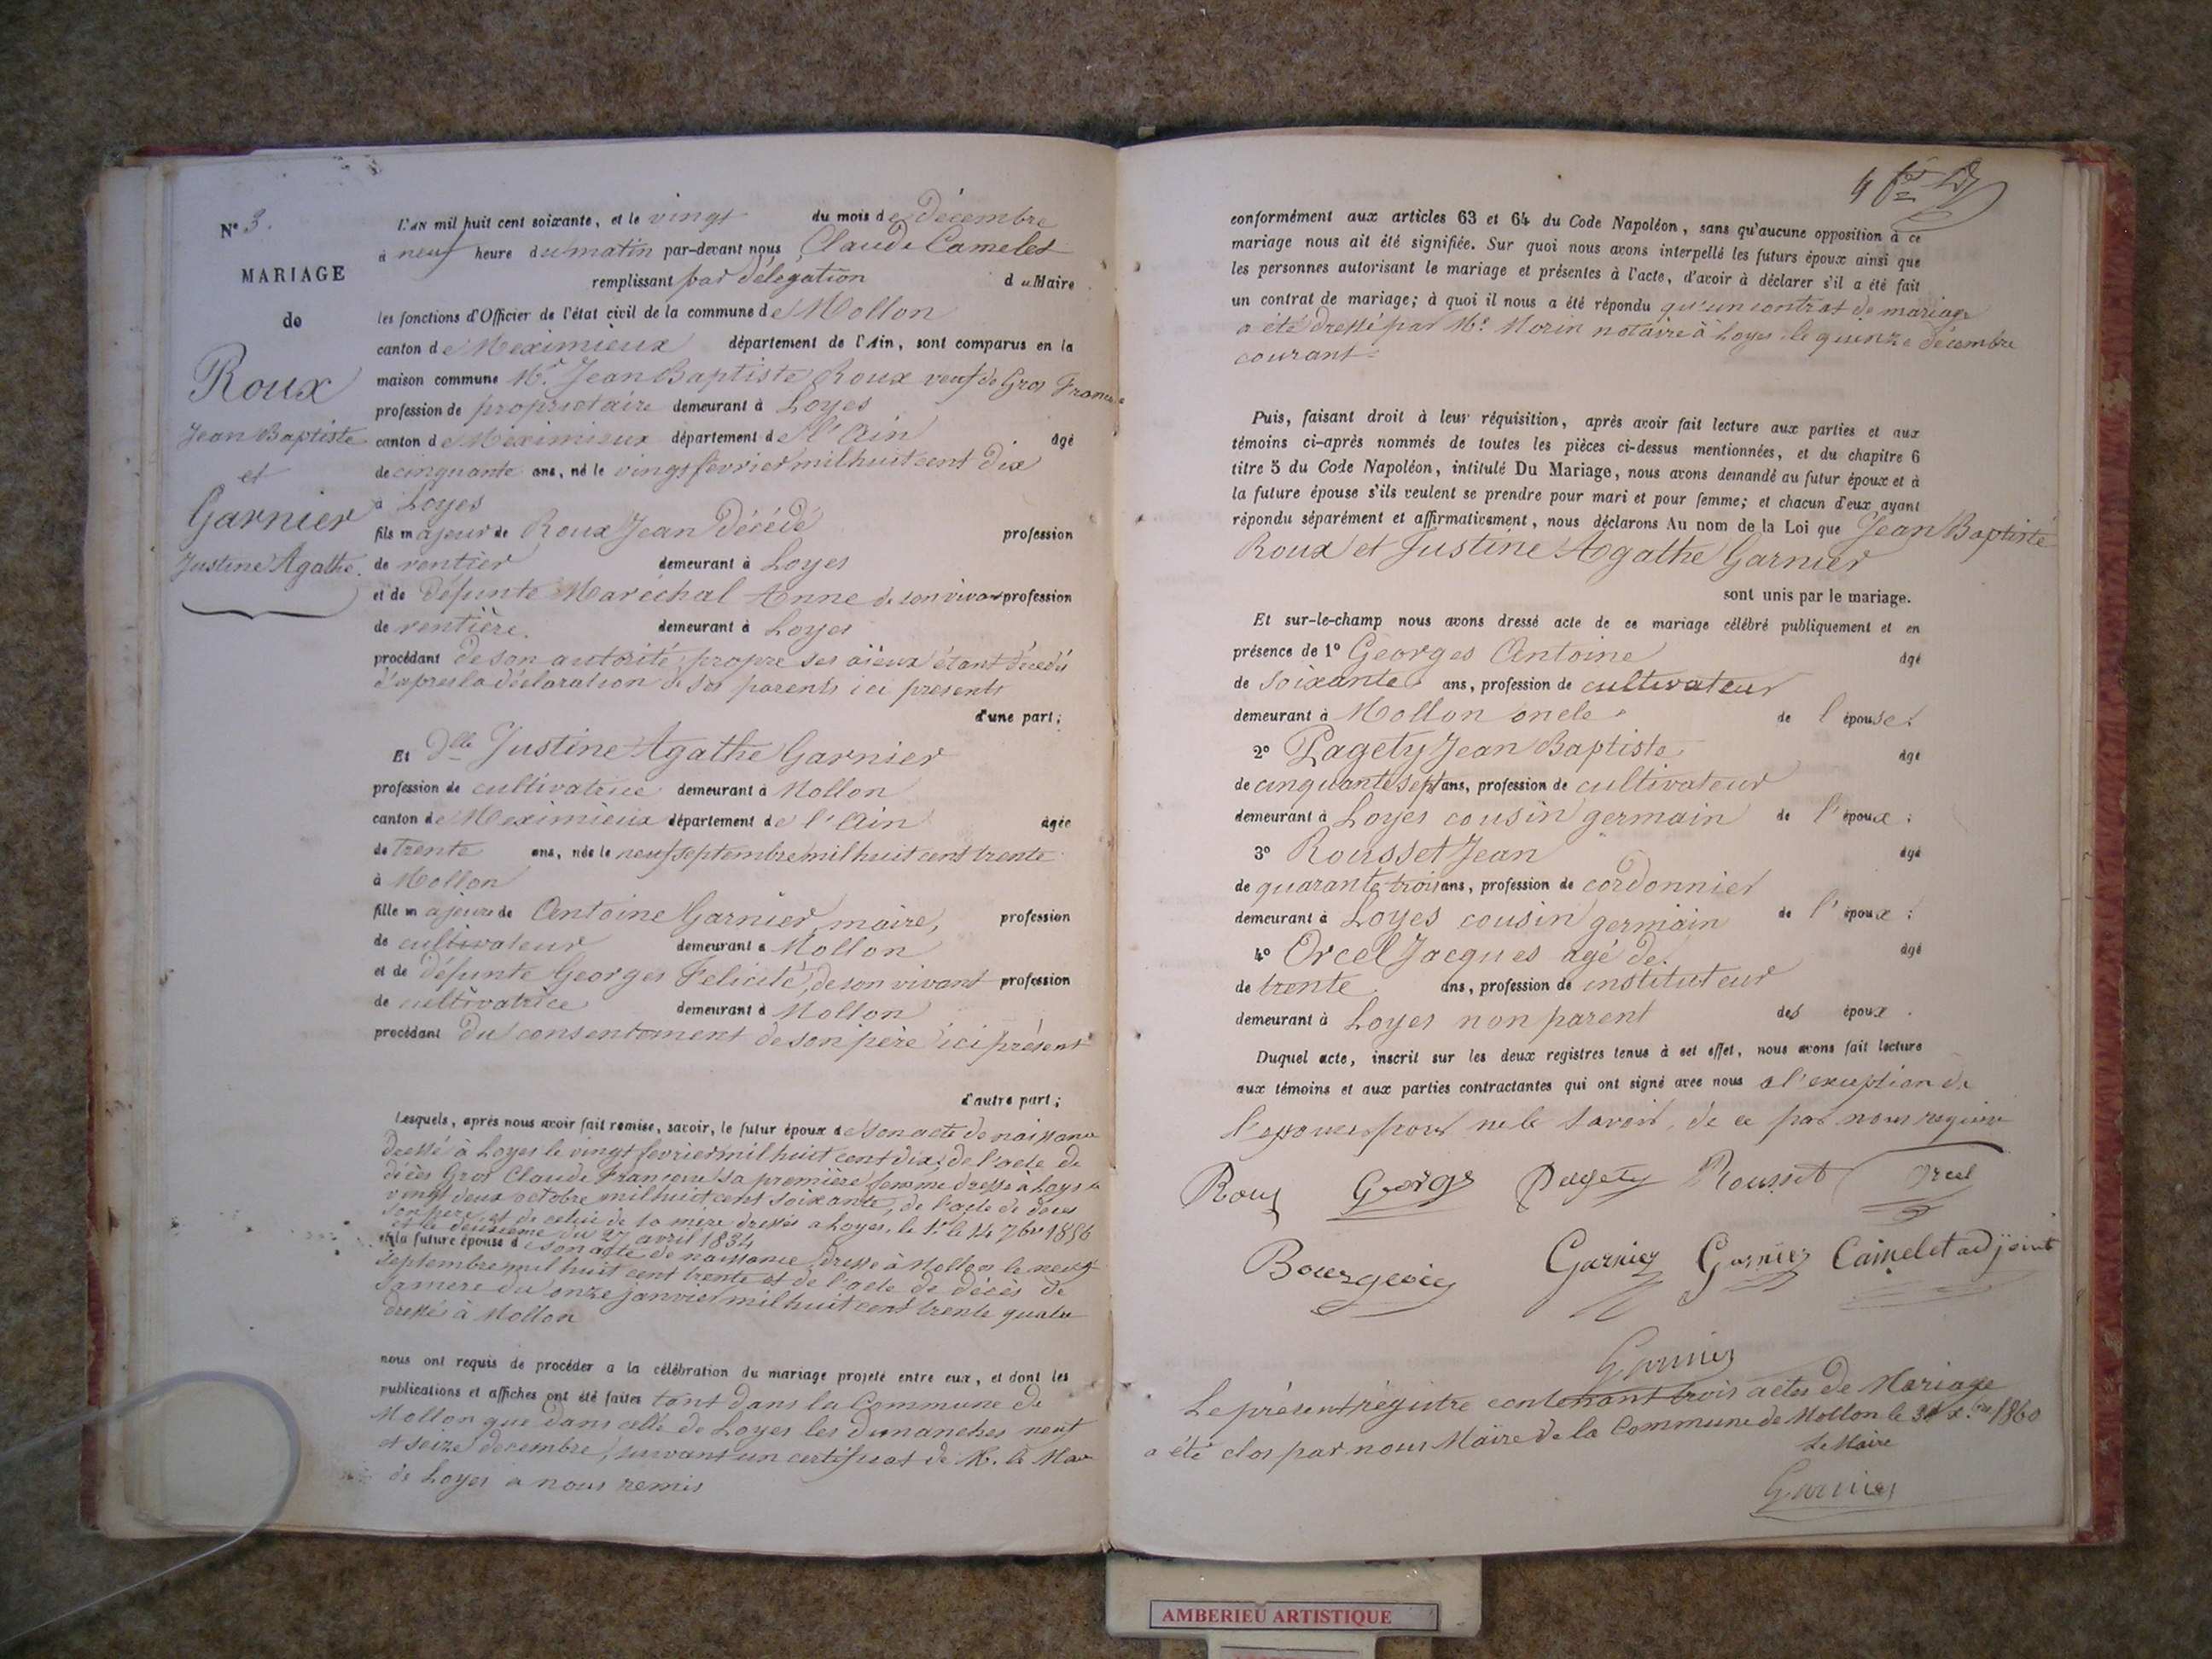 N° 3.
MARIAGE
de
Roux
Jean Baptiste
et
Garnier
Justine Agathe.
L'AN mil huit cent soixante, et le vingt du mois de Décembre
à neuf heure du matin par-devant nous Claude Camelet
remplissant par délégation du Maire
les fonctions d'Officier de l'état civil de la commune de Mollon
canton de Meximieux département de l'Ain, sont comparus en la
maison commune Mr. Jean Baptiste Roux veuf de Gros
profession de propriétaire demeurant à Loyes
canton de Meximieux département de l'Ain âgé
de cinquante ans, né le vingt février mil huit cent dix
à Loyes
fils majeur de Roux Jean Décédé profession
de rentier demeurant à Loyes
et de Défunte Maréchal Anne de son vivant profession
de rentière. demeurant à Loyes
procédant de son autorité propre ses aïeux étant décédés
d'après la déclaration de ses parents ici présents
d'une part;
Et Dlle Justine Agathe Garnier
profession de cultivatrice demeurant à Mollon
canton de Meximieux département de l'Ain âgée
de trente ans, née le neuf septembre mil huit cent trente
à Mollon
fille majeure de Antoine Garnier maire, profession
de cultivateur demeurant à Mollon
et de défunte Georges Felicité, de son vivant profession
de cultivatrice demeurant à Mollon
procédant du consentement de son père ici présent
d'autre part;
Lesquels, après nous avoir fait remise, savoir, le futur époux de son acte de naissance
dressé à Loyes le vingt fevrier mil huit cent dix, de l'acte de
décès Gros Claude Françoise sa première femme dressé à Loyes le
vingt deux octobre mil huit cent soixante, de l'acte de décès
son père et de celui de sa mère dressés a Loyes, le 1er le 14 7bre 1856
et le deuxième du 27 avril 1834
et la future épouse de son acte de naissance dressé à Mollon le neuf
septembre mil huit cent trente et de l'acte de décès de
sa mère du onze janvier mil huit cent trente quatre
dressé à Mollon
nous ont requis de procéder a la célébration du mariage projeté entre eux, et dont les
publications et affiches ont été faites tant dans la Commune de
Mollon que dans celle de Loyes les dimanches neuf
et seize decembre, suivant un certificat de M. le Maire
de Loyes a nous remis
4
conformément aux articles 63 et 64 du Code Napoléon, sans qu'aucune opposition à ce
mariage nous ait été signifiée. Sur quoi nous avons interpellé les futurs époux ainsi que
les personnes autorisant le mariage et présentes à l'acte, d'avoir à déclarer s'il a été fait
un contrat de mariage; à quoi il nous a été répondu qu'un contrat de mariage
a été dressé par Me. Morin notaire à Loyes le quinze décembre
courant
Puis, faisant droit à leur réquisition, après avoir fait lecture aux parties et aux
témoins ci-après nommés de toutes les pièces ci-dessus mentionnées, et du chapitre 6
titre 5 du Code Napoléon, intitulé Du Mariage, nous avons demandé au futur époux et à
la future épouse s'ils veulent se prendre pour mari et pour femme; et chacun d'eux ayant
répondu séparément et affirmativement, nous déclarons Au nom de la Loi que Jean Baptiste
Roux et Justine Agathe Garnier
sont unis par le mariage.
Et sur-le-champ nous avons dressé acte de ce mariage célébré publiquement et en
présence de 1° Georges Antoine âgé
de soixante ans, profession de cultivateur
demeurant à Mollon oncle de l'épouse;
2° Pagety Jean Baptiste âgé
de cinquante sept ans, profession de cultivateur
demeurant à Loyes cousin germain de l'époux;
3° Rousset Jean âgé
de quarante trois ans, profession de cordonnier
demeurant à Loyes cousin germain de l'époux;
4° Orcel Jacques agé de âgé
de trente ans, profession de instituteur
demeurant à Loyes non parent des époux.
Duquel acte, inscrit sur les deux registres tenus à cet effet, nous avons fait lecture
aux témoins et aux parties contractantes qui ont signé avec nous a l'exception de
l'épouse pour ne le savoir, de ce par nous requise
Roux George Pagety Rousset Orcel
Bourgeois Garnier Garnier Camelet adjoint
Garnier
Le présent régistre contenant trois actes de Mariage
a été clos par nous Maire de la Commune de Mollon le 31 Xbre 1860
Le Maire
Garnier
AMBERIEU ARTISTIQUE